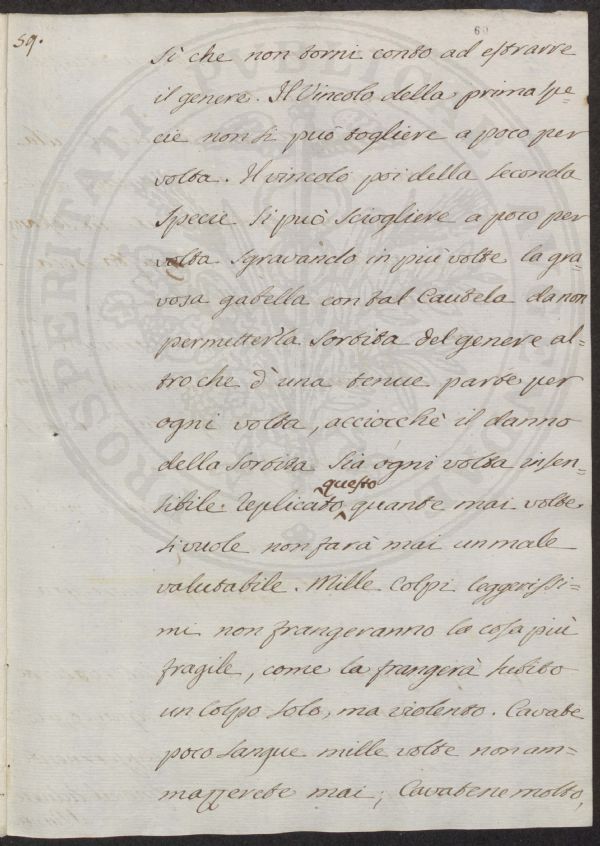 59.
60
sì che non torni conto ad estrarre
il genere. Il Vincolo della prima spe=
cie non si può togliere a poco per
volta. Il vincolo poi della seconda
specie si può sciogliere a poco per
volta sgravando in più volte la gra=
vosa gabella con tal Cautela da non
permetter la sortita del genere al=
tro che d'una tenue parte per
ogni volta, acciocchè il danno
della sortita sia ogni volta insen=
questo
sibile. Replicato quante mai volte
si vuole non farà mai un male
valutabile. Mille Colpi leggerissi=
mi non frangeranno la cosa più
fragile, come la frangerà subito
un Colpo solo, ma violento. Cavate
poco sangue mille volte non am=
mazzerete mai; Cavatene molto,
PROSPERITATI PUBLICAE AUGENDAE